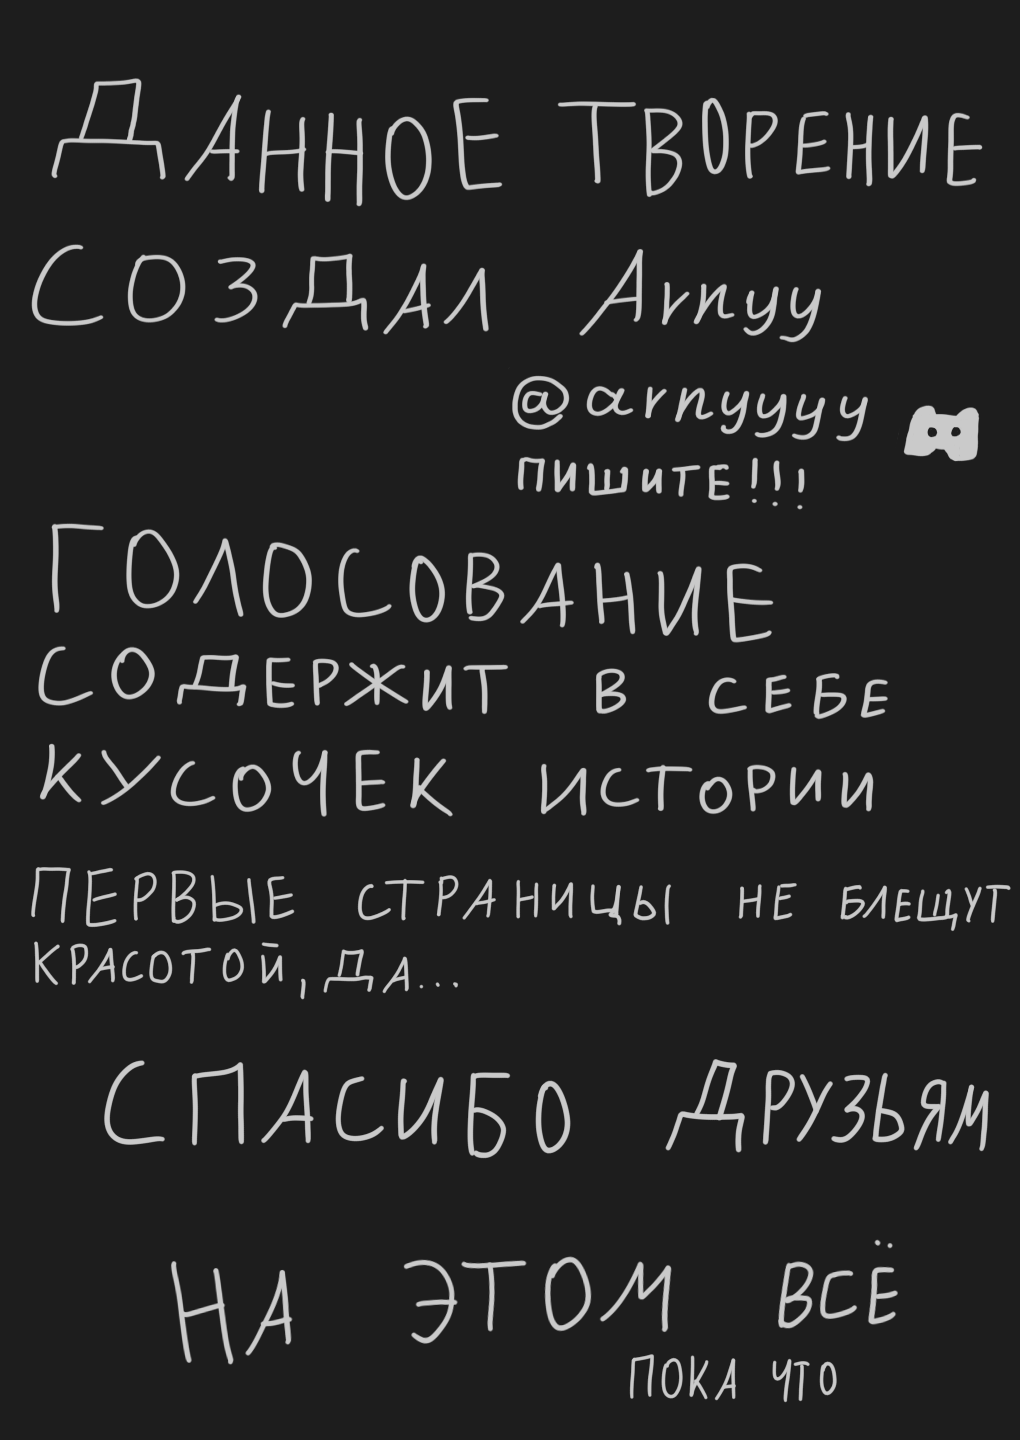 ДАННОЕ ТВОРЕНИЕ
СОЗДАЛ Arnyy
@arnyyyy
ПИШИТЕ!!!
ГОЛОСОВАНИЕ
СОДЕРЖИТ В СЕБЕ
КУСОЧЕК ИСТОРИИ
ПЕРВЫЕ СТРАНИЦЫ НЕ БЛЕЩУТ
КРАСОТОЙ, ДА...
СПАСИБО ДРУЗЬЯМ
НА ЭТОМ ВСЁ
ПОКА ЧТО